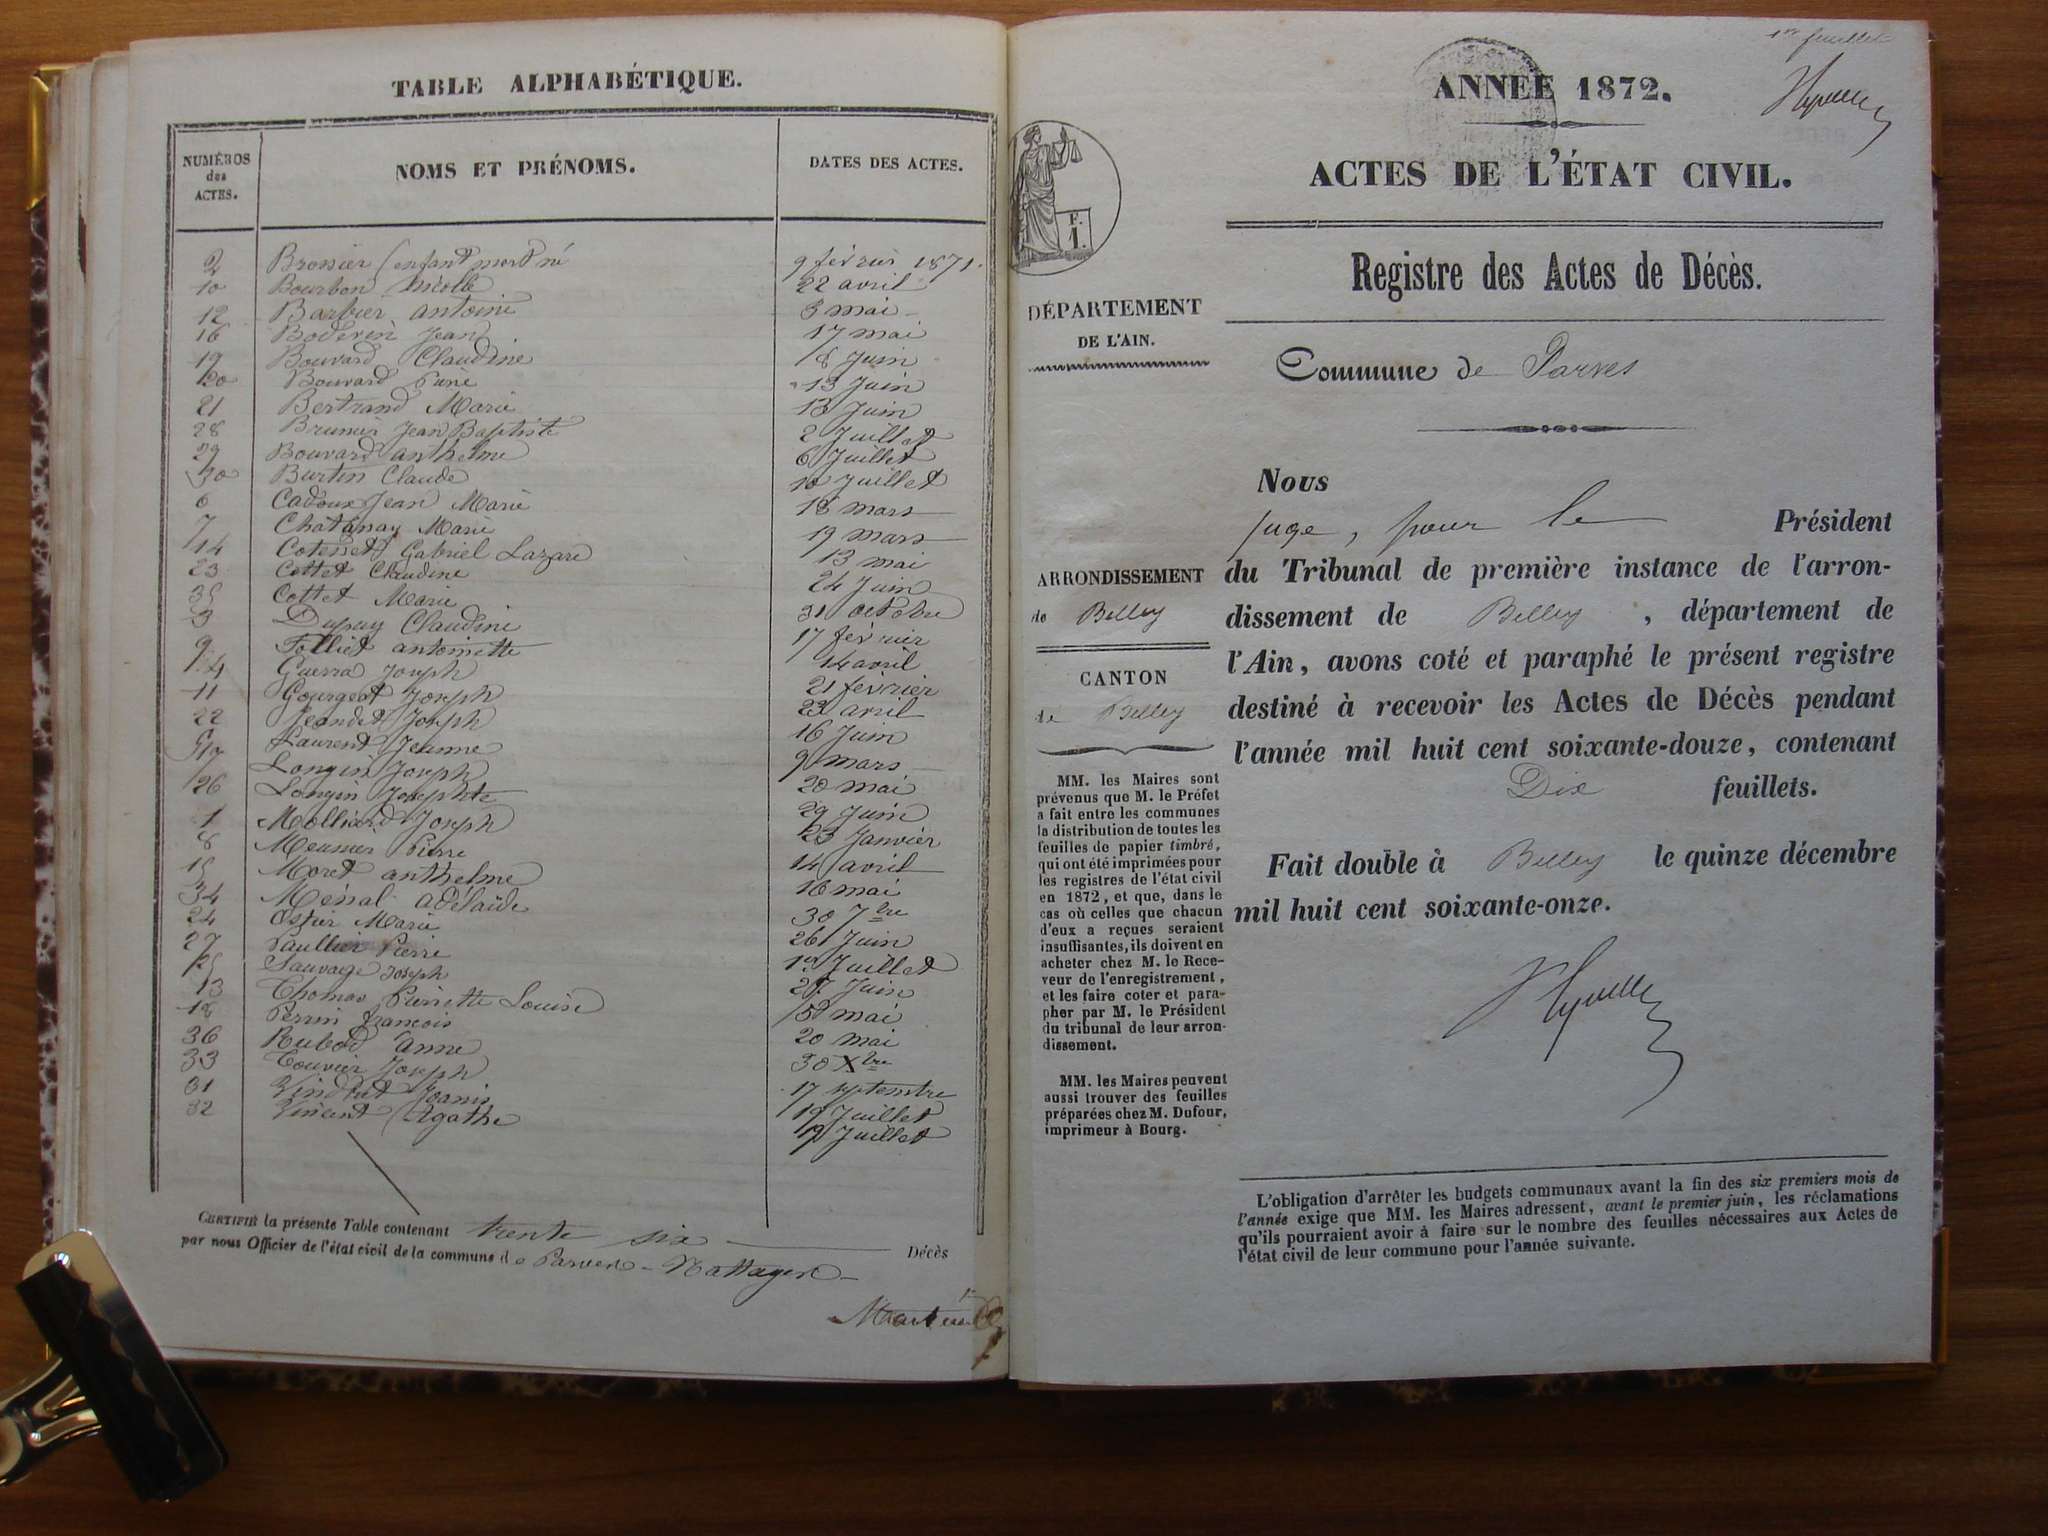 TABLE ALPHABÉTIQUE.
NUMÉROS des ACTES.
NOMS ET PRÉNOMS.
DATES DES ACTES.
2 Brossier (enfant mort né 9 février 1871.
10 Bourbon Nicolle 22 avril
12 Barbier antoine 3 mai
16 Boderin Jean 17 mai
19 Bouvard Claudine 8 Juin
20 Bouvard 13 Juin
21 Bertrand Marie 13 Juin
28 Brunier Jean Baptiste 2 Juillet
29 Bouvard anthelme 6 Juillet
30 Burtin Claude 10 Juillet
6 Cadoux Jean Marie 18 mars
7 Châtanay Marie 19 mars
14 Gabriel Lazare 13 mai
23 Cottet Claudine 24 Juin
35 Cottet Marie 31 octobre
3 Dupuy Claudine 17 février
9 Folliet antoinette 14 avril
4 Guerra Joseph 21 février
11 Gourgeat Joseph 23 avril
22 Jeandet Joseph 16 Juin
5 Laurent Jeanne 9 mars
17 Longin Joseph 20 mai
26 Longin Josephte 29 Juin
1 Molliard Joseph 23 Janvier
8 Meunier Pierre 14 avril
15 Moret anthelme 16 mai
34 Ménal adélaïde 30 7bre
24 Ostier Marie 26 Juin
27 Paullier Pierre 1er Juillet
25 Sauvage Joseph 27 Juin
13 Thomas Pierrette Louise 5 mai
18 Perrin françois 20 mai
36 Rubod anne 30 Xbre
33 Touvier Joseph 17 septembre
31 Vindret Joanis 19 Juillet
32 Vincent Agathe 19 Juillet
CERTIFIÉ la présente Table contenant trente six Décès
par nous Officier de l'état civil de la commune de Parves - Nattages -
1er feuillet
ANNÉE 1872.
ACTES DE L'ÉTAT CIVIL.
Registre des Actes de Décès.
F.
1.
DÉPARTEMENT
DE L'AIN.
Commune de Parves
ARRONDISSEMENT
de Belley
CANTON
de Belley
MM. les Maires sont
prévenus que M. le Préfet
a fait entre les communes
la distribution de toutes les
feuilles de papier timbré,
qui ont été imprimées pour
les registres de l'état civil
en 1872, et que, dans le
cas où celles que chacun
d'eux a reçues seraient
insuffisantes, ils doivent en
acheter chez M. le Rece-
veur de l'enregistrement,
et les faire coter et para-
pher par M. le Président
du tribunal de leur arron-
dissement.
MM. les Maires peuvent
aussi trouver des feuilles
préparées chez M. Dufour,
imprimeur à Bourg.
Nous
juge, pour le Président
du Tribunal de première instance de l'arron-
dissement de Belley, département de
l'Ain, avons coté et paraphé le présent registre
destiné à recevoir les Actes de Décès pendant
l'année mil huit cent soixante-douze, contenant
Dix feuillets.
Fait double à Belley le quinze décembre
mil huit cent soixante-onze.
L'obligation d'arrêter les budgets communaux avant la fin des six premiers mois de
l'année exige que MM. les Maires adressent, avant le premier juin, les réclamations
qu'ils pourraient avoir à faire sur le nombre des feuilles nécessaires aux Actes de
l'état civil de leur commune pour l'année suivante.